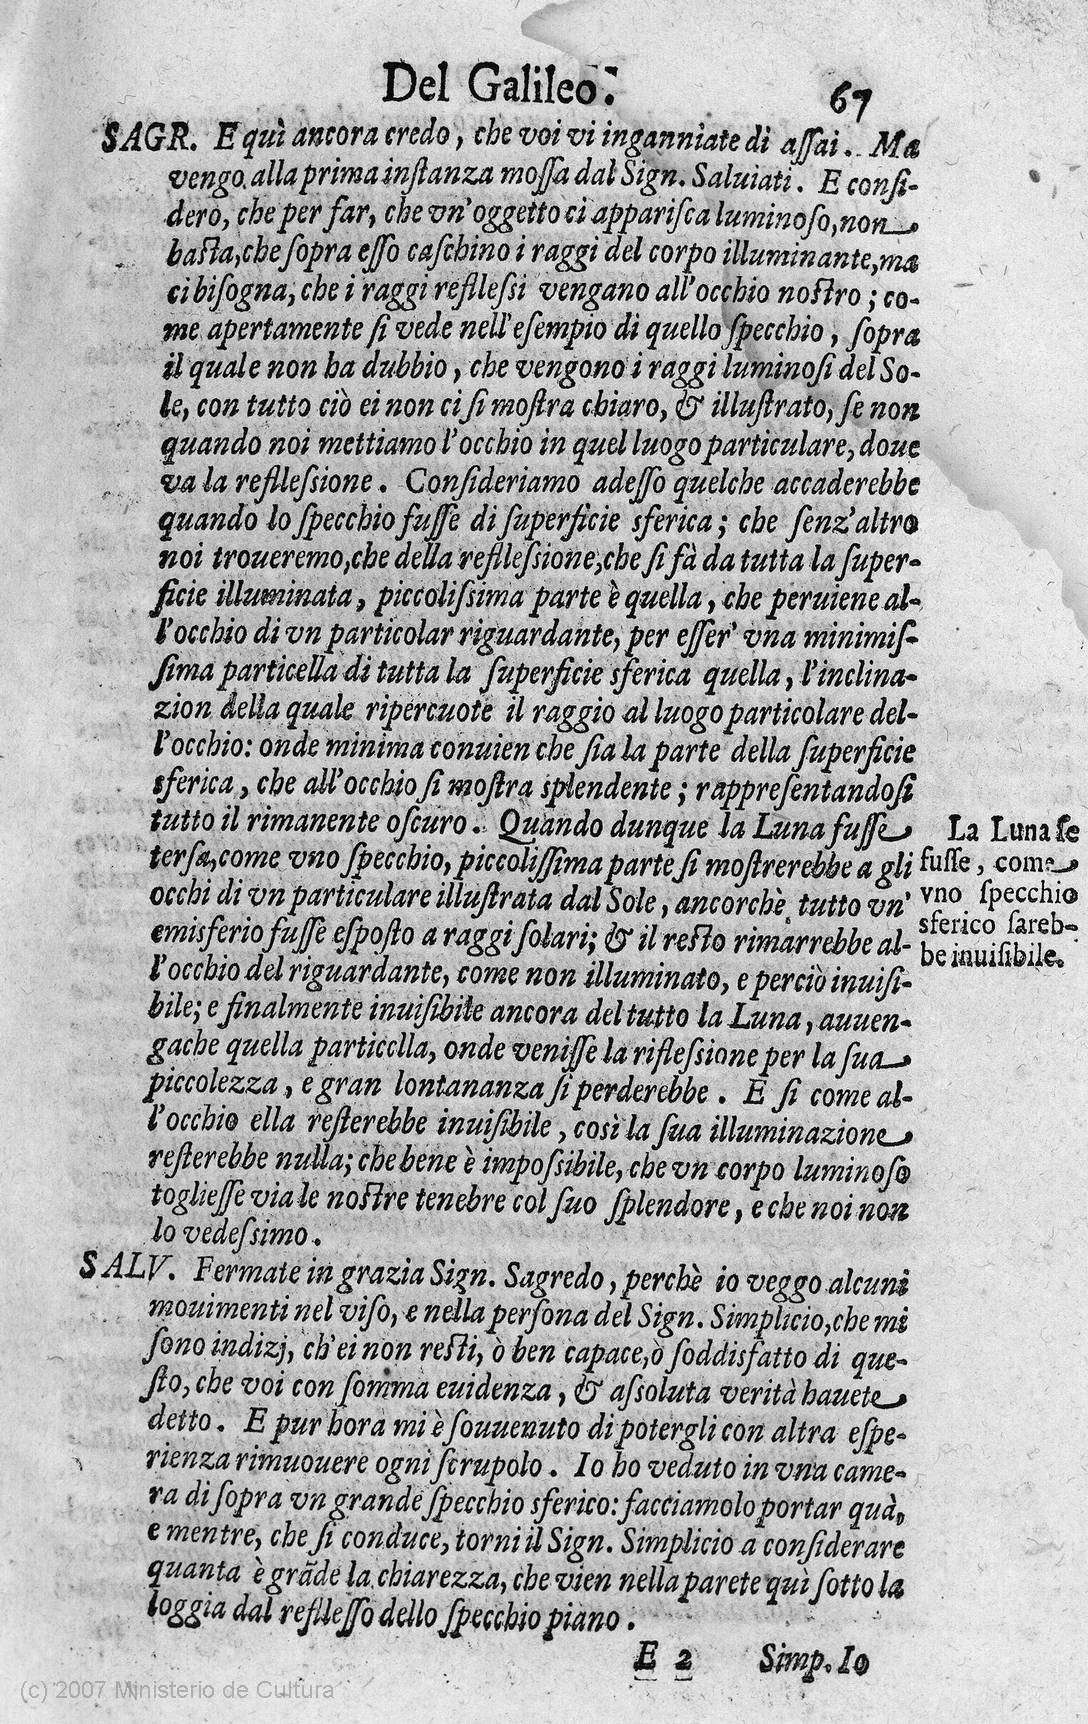 Del Galileo. 67
SAGR. E quì ancora credo, che voi vi inganniate di assai. Ma
vengo alla prima instanza mossa dal Sign. Saluiati. E consi-
dero, che per far, che vn'oggetto ci apparisca luminoso, non
basta, che sopra esso caschino i raggi del corpo illuminante, ma
ci bisogna, che i raggi refllessi vengano all'occhio nostro; co-
me apertamente si vede nell'esempio di quello specchio, sopra
il quale non ha dubbio, che vengono i raggi luminosi del So-
le, con tutto ciò ei non ci si mostra chiaro, & illustrato, se non
quando noi mettiamo l'occhio in quel luogo particulare, doue
va la refllessione. Consideriamo adesso quelche accaderebbe
quando lo specchio fusse di superficie sferica; che senz'altro
noi troueremo, che della refllessione, che si fà da tutta la super-
ficie illuminata, piccolissima parte è quella, che peruiene al-
l'occhio di vn particolar riguardante, per esser' vna minimis-
sima particella di tutta la superficie sferica quella, l'inclina-
zion della quale ripercuote il raggio al luogo particolare del-
l'occhio: onde minima conuien che sia la parte della superficie
sferica, che all'occhio si mostra splendente; rappresentandosi
tutto il rimanente oscuro. Quando dunque la Luna fusse
tersa, come vno specchio, piccolissima parte si mostrerebbe a gli
occhi di vn particulare illustrata dal Sole, ancorchè tutto vn'
emisferio fusse esposto a raggi solari; & il resto rimarrebbe al-
l'occhio del riguardante, come non illuminato, e perciò inuisi-
bile; e finalmente inuisibile ancora del tutto la Luna, auuen-
gache quella particella, onde venisse la riflessione per la sua
piccolezza, e gran lontananza si perderebbe. E si come al-
l'occhio ella resterebbe inuisibile, così la sua illuminazione
resterebbe nulla; che bene è impossibile, che vn corpo luminoso
togliesse via le nostre tenebre col suo splendore, e che noi non
lo vedessimo.
La Luna se
fusse, come
vno specchio
sferico sareb-
be inuisibile.
SALV. Fermate in grazia Sign. Sagredo, perchè io veggo alcuni
mouimenti nel viso, e nella persona del Sign. Simplicio, che mi
sono indizj, ch'ei non resti, ò ben capace, ò soddisfatto di que-
sto, che voi con somma euidenza, & assoluta verità hauete
detto. E pur hora mi è souuenuto di potergli con altra espe-
rienza rimuouere ogni scrupolo. Io ho veduto in vna came-
ra di sopra vn grande specchio sferico: facciamolo portar quà,
e mentre, che si conduce, torni il Sign. Simplicio a considerare
quanta è grãde la chiarezza, che vien nella parete quì sotto la
loggia dal refllesso dello specchio piano.
E 2 Simp. Io
(c) 2007 Ministerio de Cultura